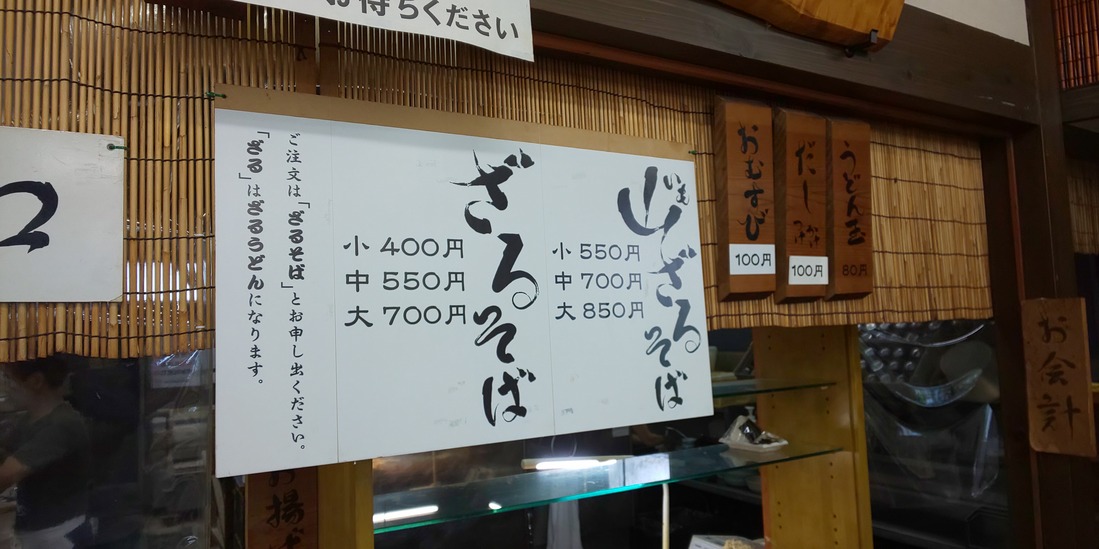 お待ちください
2
いも
山ざるそば
小 550円
中 700円
大 850円
ざるそば
小 400円
中 550円
大 700円
ご注文は「ざるそば」とお申し出ください。
「ざる」はざるうどんになります。
おむすび
100円
だし
100円
うどん玉
80円
お会計
お揚げ